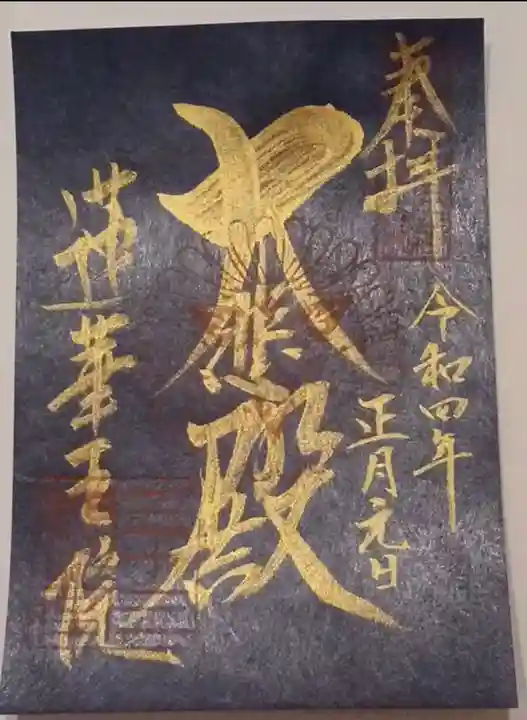 奉拝
令和四年
正月元日
大悲殿
蓮華王院